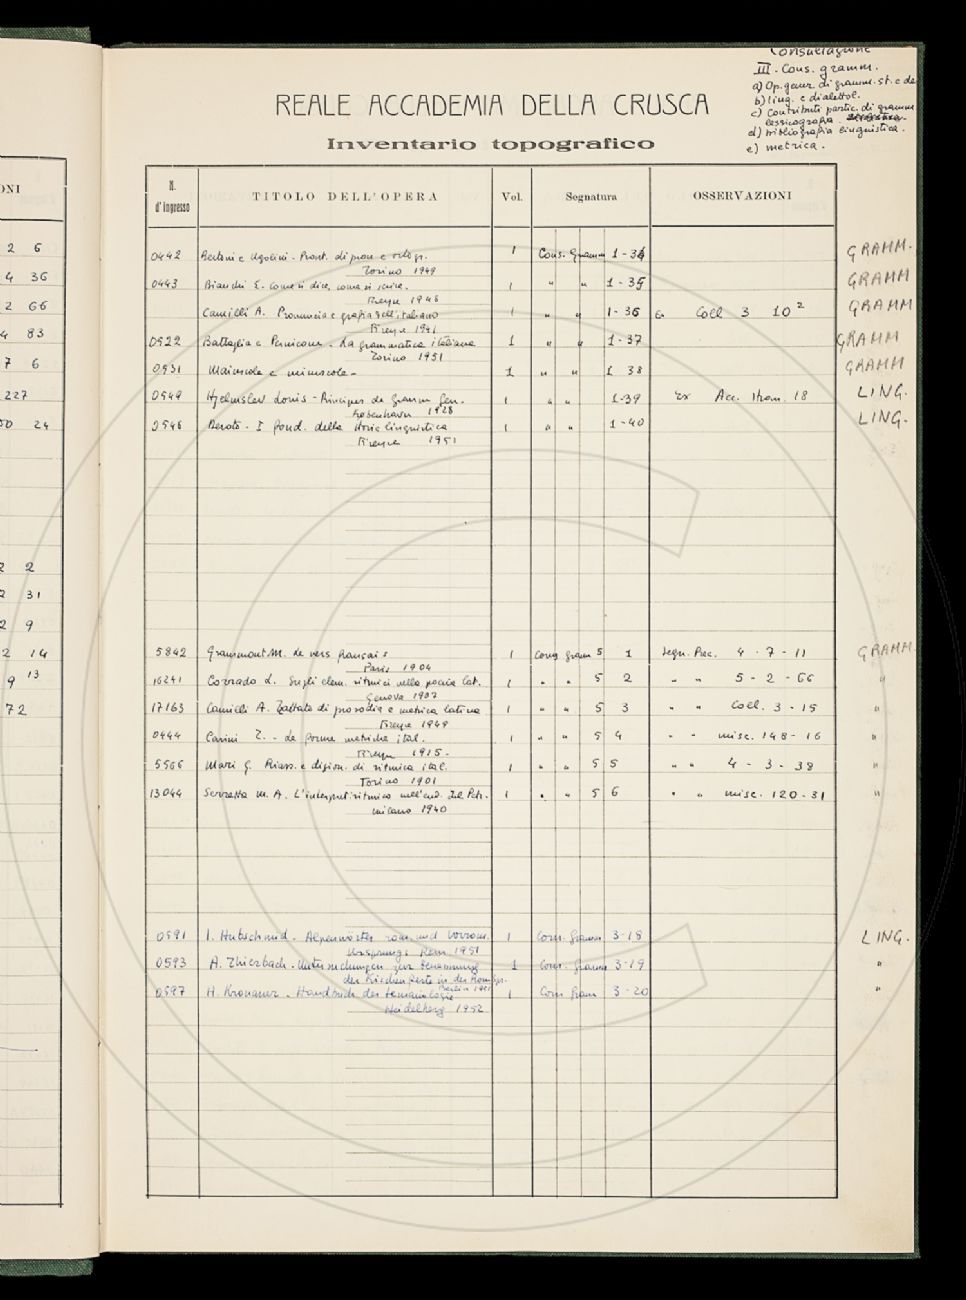 Consultazione
III. Cons. gramm.
a) Op. gener. di gramm. st. e de
b) ling. e dialettol.
c) Contributi partic. di gramm
lessicografia
d) bibliografia linguistica.
e) metrica.
REALE ACCADEMIA DELLA CRUSCA
Inventario topografico
N. d'ingresso TITOLO DELL'OPERA Vol. Segnatura OSSERVAZIONI
ONI
2 6
4 36
2 66
4 83
7 6
227
24
2
31
2 9
2 14
9 13
72
0442 Bertoni e Ugolini - Pront. di pron. e ortogr. 1 Cons. Gramm 1-34 GRAMM.
Torino 1949
0443 Bianchi E. Come si dice, come si scrive. 1 " " 1-35 GRAMM
Firenze 1948
Camilli A. Pronuncia e grafia dell'italiano 1 " " 1-36 Coll 3 10 2 GRAMM
Firenze 1941
0522 Battaglia e Pernicone - La grammatica italiana 1 " " 1-37 GRAMM
Torino 1951
0531 Maiuscole e minuscole - 1 " " 1 38 GRAMM
0549 Hjelmslev Louis - Principes de Gramm Gen. 1 " " 1-39 Ex Acc. Strom. 18 LING.
København 1928
0546 Deroti - I fond. della storia linguistica 1 " " 1-40 LING.
Firenze 1951
5842 Grammont M. Le vers français 1 Cons gramm 5 1 Segn. Prec. 4 - 7 - 11 GRAMM.
Paris 1904
16241 Corrado L. Sugli elem. ritmici nella poesia lat. 1 " " 5 2 " " 5 - 2 - 66 "
Genova 1907
17163 Camilli A. Trattato di prosodia e metrica latina 1 " " 5 3 " " Coll. 3 - 15 "
Firenze 1949
0444 Casini T. - Le forme metriche ital. 1 " " 5 4 " " misc. 148 - 16 "
Firenze 1915 -
5566 Mari G. Riass. e dizion. di ritmica ital. 1 " " 5 5 " " 4 - 3 - 38 "
Torino 1901
13044 Serretta M. A. L'interpret. ritmico nell'end. del Petr. 1 " " 5 6 " " misc. 120 - 31 "
Milano 1940
0591 I. Hubschmid - Alpenwörter rom. und vorrom. 1 Cons. Gramm 3-18 LING.
Ursprungs Bern 1951
0593 A. Thierbach - Untersuchungen zur Benennung 1 Cons. Gramm 3-19 "
der Kirchenfeste in den Rom. Spr.
Berlin 1951
0597 H. Kronasser - Handbuch der Semasiologie 1 Cons Gram 3-20 "
Heidelberg 1952